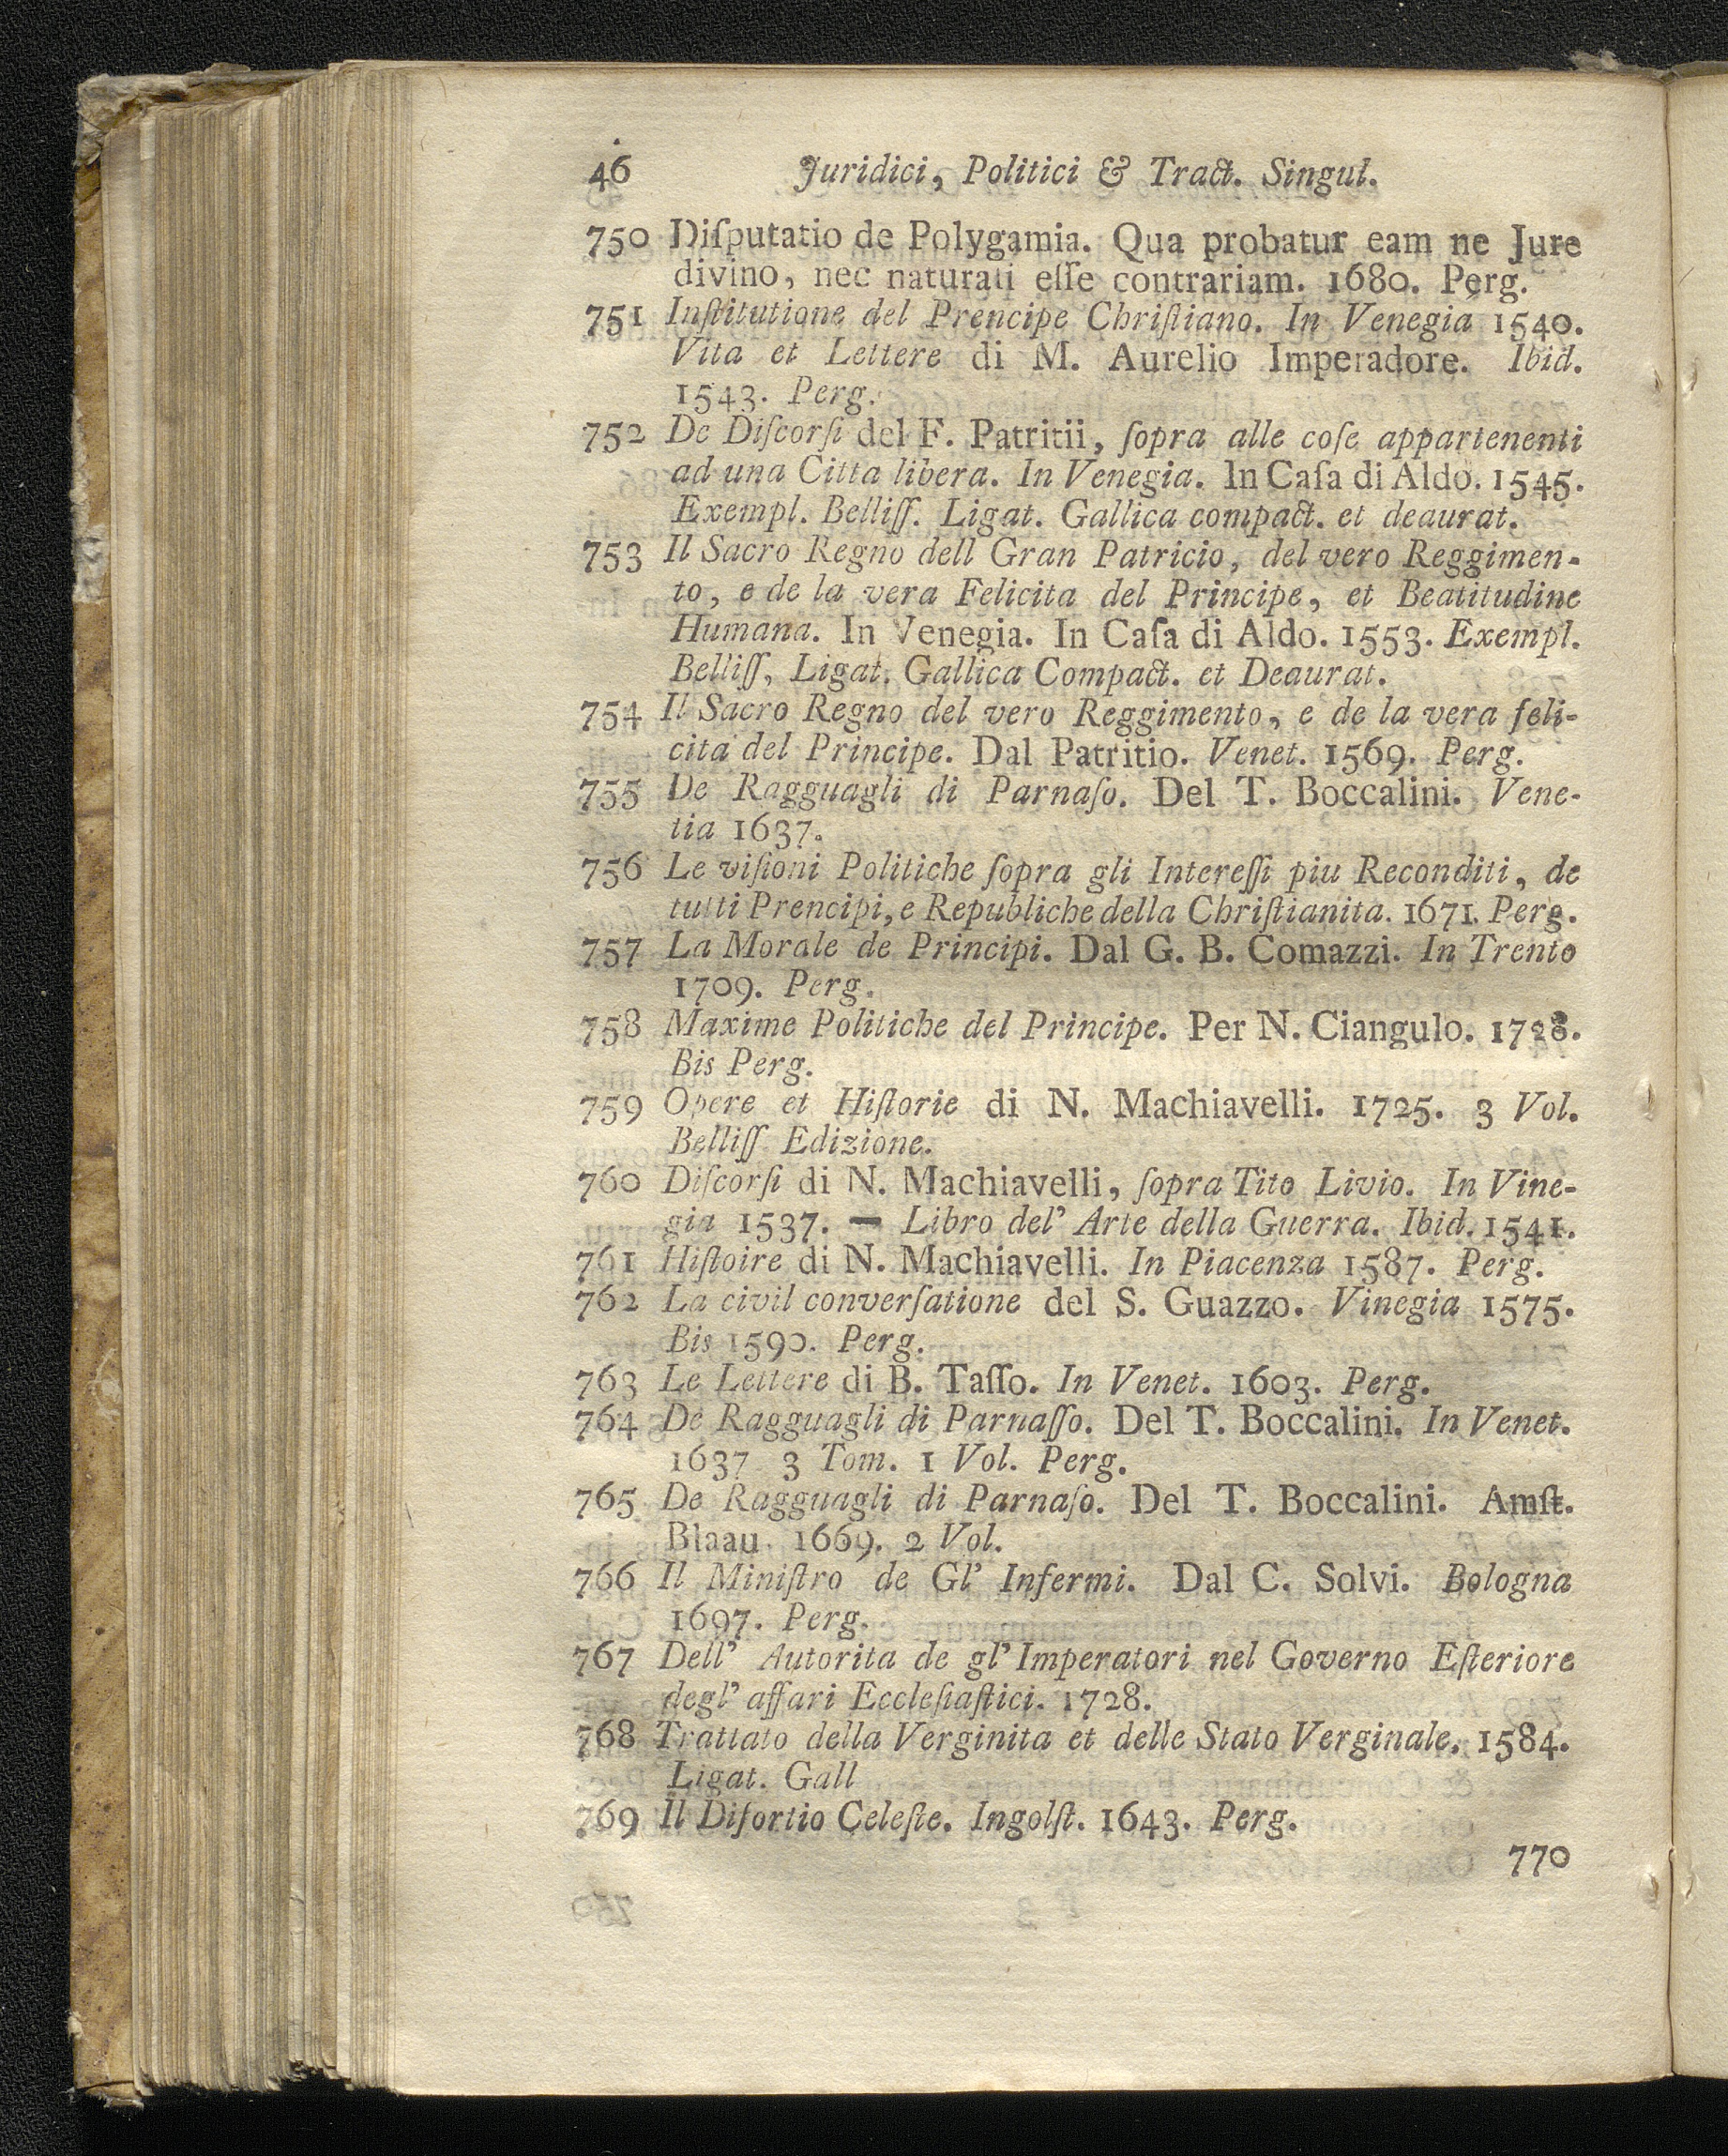 46 Juridici, Politici & Tract. Singul.
750 Diſputatio de Polygamia. Qua probatur eam ne Jure
divino, nec naturali eſſe contrariam. 1680. Perg.
751 Inſtitutione del Prencipe Chriſtiano. In Venegia 1540.
Vita et Lettere di M. Aurelio Imperadore. Ibid.
1543. Perg.
752 De Diſcorſi del F. Patritii, ſopra alle coſe appartenenti
ad una Citta libera. In Venegia. In Caſa di Aldo. 1545.
Exempl. Belliſſ. Ligat. Gallica compact. et deaurat.
753 Il Sacro Regno dell Gran Patricio, del vero Reggimen-
to, e de la vera Felicita del Principe, et Beatitudine
Humana. In Venegia. In Caſa di Aldo. 1553. Exempl.
Belliſſ, Ligat. Gallica Compact. et Deaurat.
754 Il Sacro Regno del vero Reggimento, e de la vera feli-
cita del Principe. Dal Patritio. Venet. 1569. Perg.
755 De Ragguagli di Parnaſo. Del T. Boccalini. Vene-
tia 1637.
756 Le viſioni Politiche ſopra gli Intereſſi piu Reconditi, de
tutti Prencipi, e Republiche della Chriſtianita. 1671. Perg.
757 La Morale de Principi. Dal G. B. Comazzi. In Trento
1709. Perg.
758 Maxime Politiche del Principe. Per N. Ciangulo. 1728.
Bis Perg.
759 Opere et Hiſtorie di N. Machiavelli. 1725. 3 Vol.
Belliſſ Edizione.
760 Diſcorſi di N. Machiavelli, ſopra Tito Livio. In Vine-
gia 1537. — Libro del' Arte della Guerra. Ibid. 1541.
761 Hiſtoire di N. Machiavelli. In Piacenza 1587. Perg.
762 La civil converſatione del S. Guazzo. Vinegia 1575.
Bis 1590. Perg.
763 Le Lettere di B. Taſſo. In Venet. 1603. Perg.
764 De Ragguagli di Parnaſſo. Del T. Boccalini. In Venet.
1637 3 Tom. 1 Vol. Perg.
765 De Ragguagli di Parnaſo. Del T. Boccalini. Amſt.
Blaau. 1669. 2 Vol.
766 Il Miniſtro de Gl' Infermi. Dal C. Solvi. Bologna
1697. Perg.
767 Dell' Autorita de gl' Imperatori nel Governo Eſteriore
degl' affari Eccleſiaſtici. 1728.
768 Trattato della Verginita et delle Stato Verginale. 1584.
Ligat. Gall
769 Il Diſortio Celeſte. Ingolſt. 1643. Perg.
770